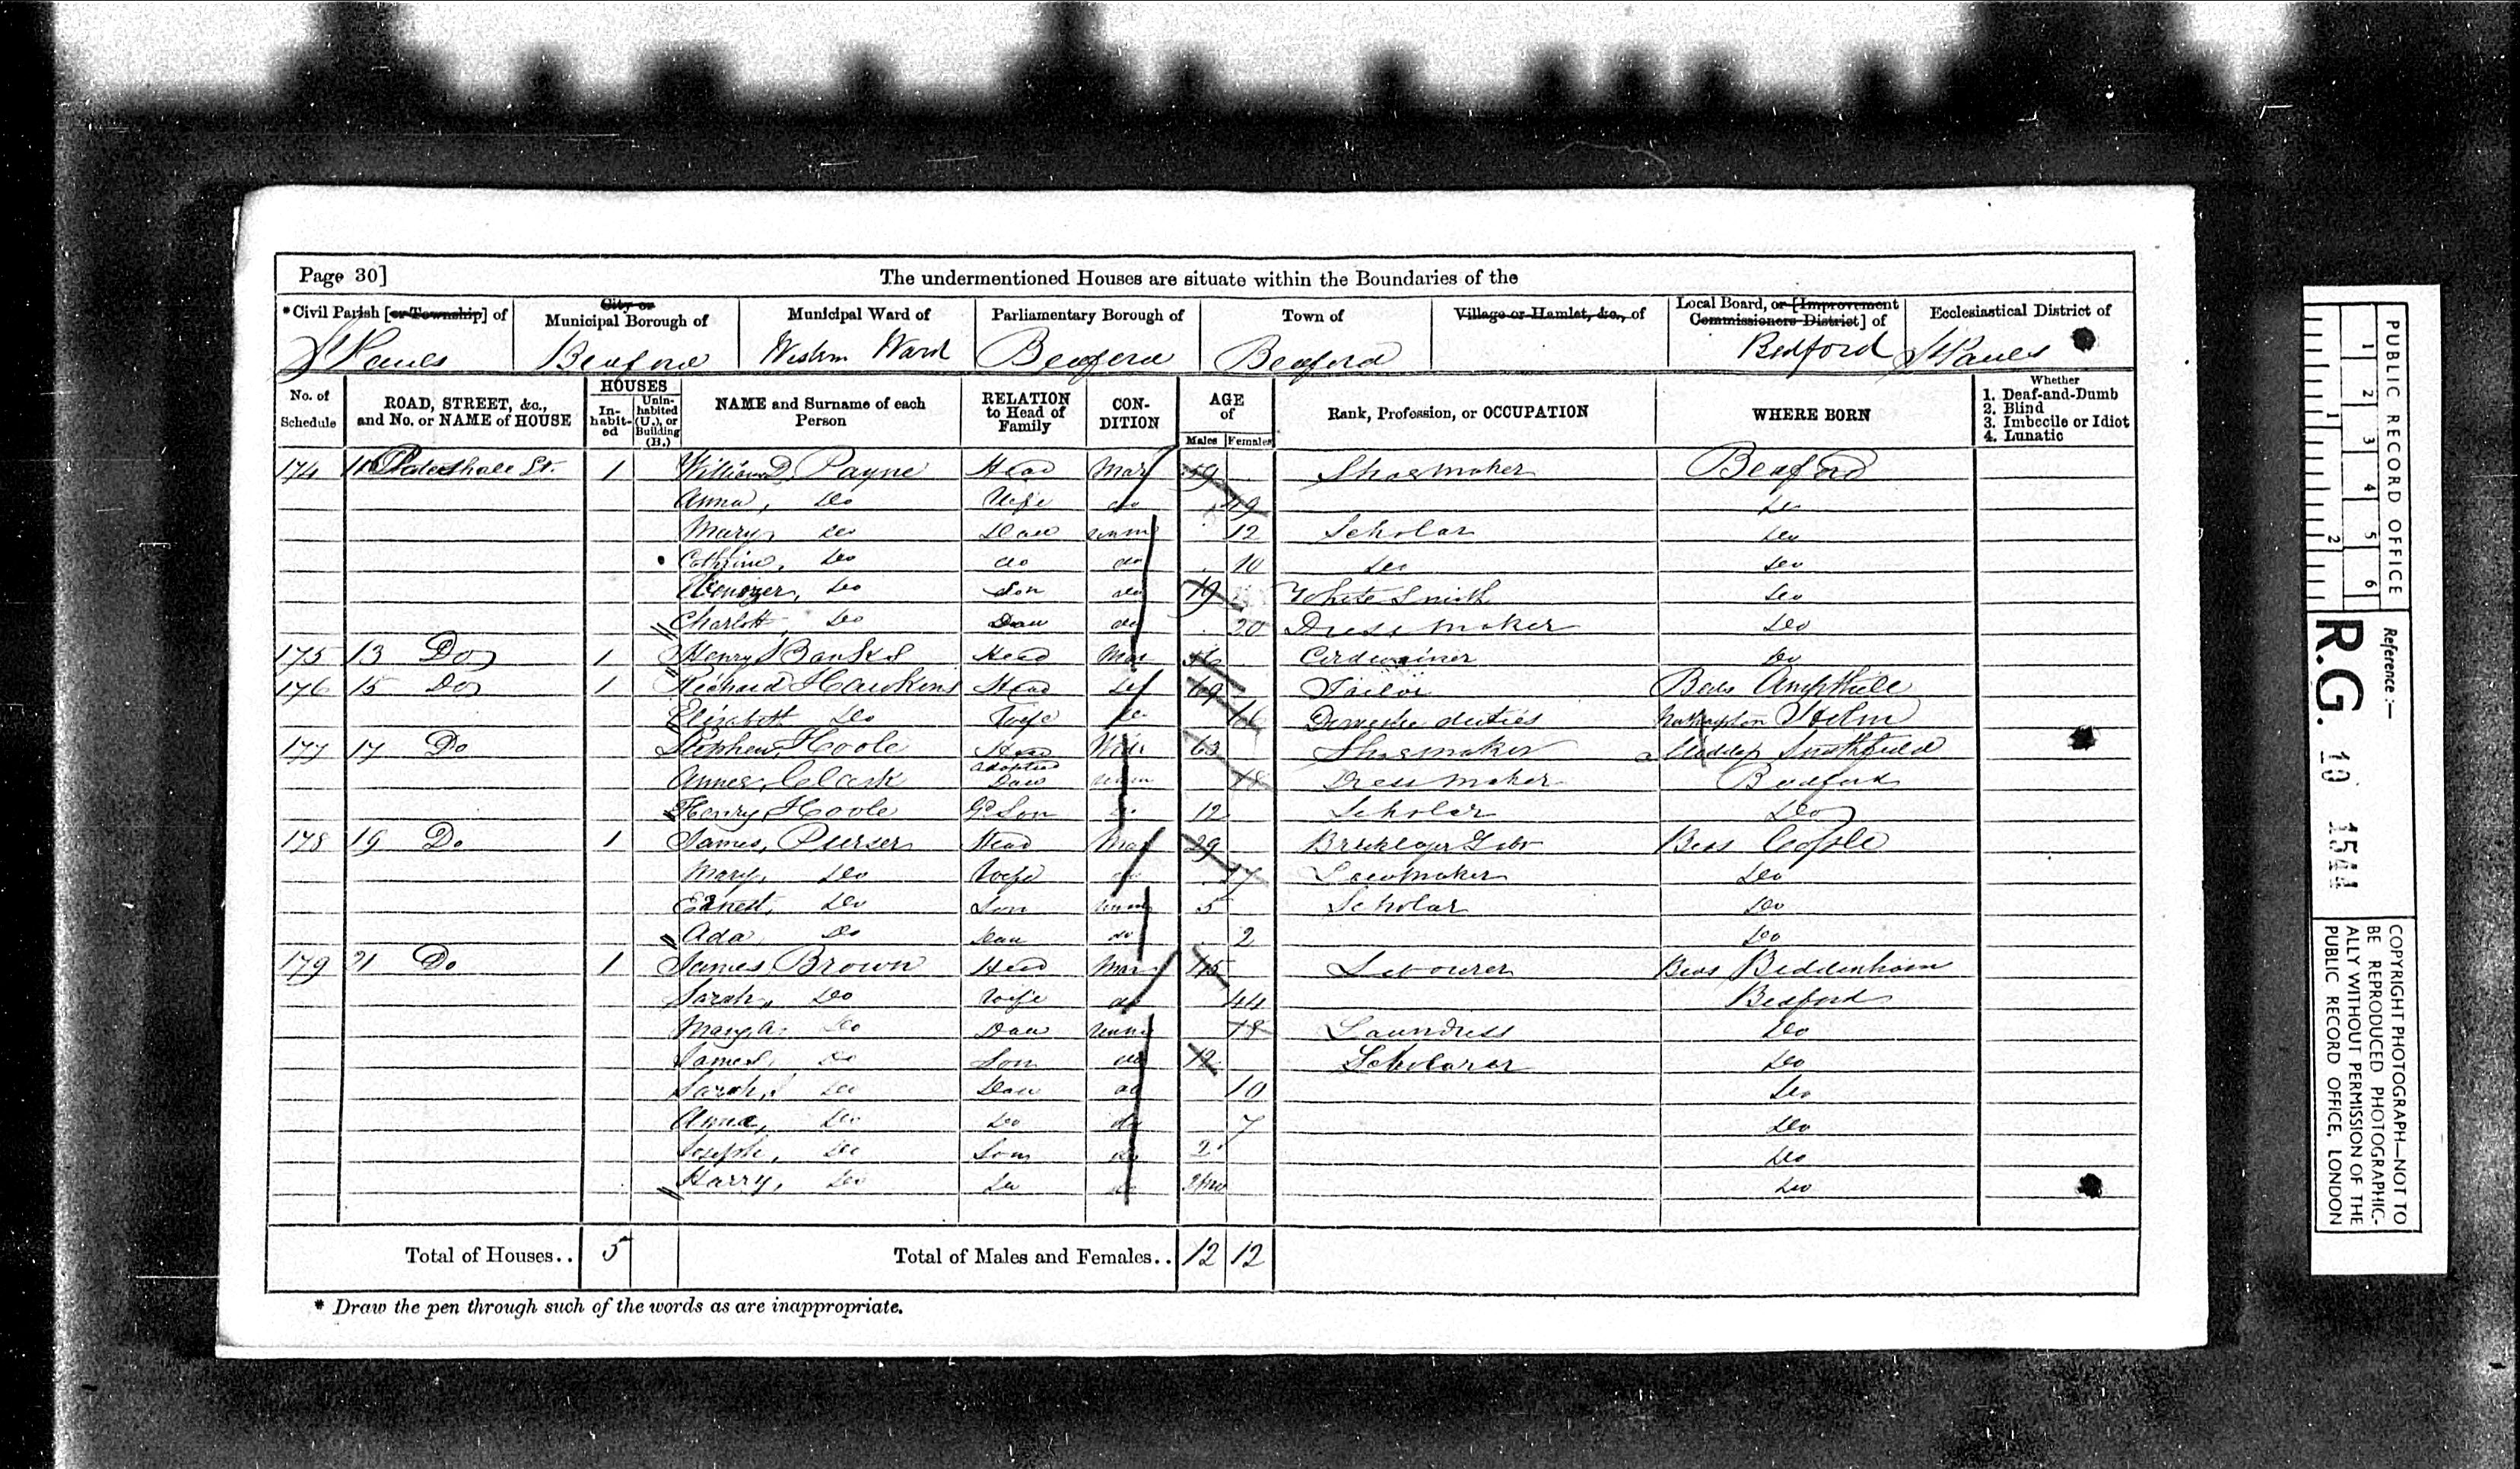 Page 30]
The undermentioned Houses are situate within the Boundaries of the
*Civil Parish [or Township] of
City or Municipal Borough of
Municipal Ward of
Parliamentary Borough of
Town of
Village or Hamlet, &c., of
Local Board, or [Improvement Commissioners District] of
Ecclesiastical District of
St Pauls Bedford Western Ward Bedford Bedford Bedford St Pauls
No. of Schedule
ROAD, STREET, &c., and No. or NAME of HOUSE
HOUSES
In-habit-ed
Unin-habited (U.), or Building (B.)
NAME and Surname of each Person
RELATION to Head of Family
CON-DITION
AGE of
Males Females
Rank, Profession, or OCCUPATION
WHERE BORN
Whether
1. Deaf-and-Dumb
2. Blind
3. Imbecile or Idiot
4. Lunatic
174 11 St. 1 William Payne Head Mar 49 Shoemaker Bedford
Anna, Do Wife do 49 Do
Mary, Do Daw unm 12 Scholar Do
Cathrine, Do do do 10 Do Do
Do Son do 19 White Smith Do
Charlott, Do Daw do 20 Dress Maker Do
175 13 Do 1 Henry Banks Head Mar Cordwainer Do
176 15 Do 1 Richard Hawkins Head Do 69 Tailor Beds Ampthill
Elizabeth Do Wife Do 66 Domestic duties
177 17 Do Stephen, Hoole Head Wid: 63 Shoemaker Smithfield
Clark adopted Daw unm 18 Dress Maker Bedford
Henry Hoole Gd Son Do 12 Scholar Do
178 19 Do 1 James, Purser Head Mar 29 Bricklayer Labr Beds Cople
Mary, Do Wife do 27 Lacemaker Do
Ernest, Do Son unm 5 Scholar Do
Ada Do Daw do 2 Do
179 21 Do 1 James Brown Head Mar 45 Labourer Beds Biddenham
Sarah, Do Wife do 44 Bedford
Mary A. Do Daw unm 18 Laundress Do
James, Do Son do 12 Scholarar Do
Sarah, Do Daw do 10 Do
Anna, Do Do do 7 Do
Joseph, Do Son do 2 Do
Harry, Do Do Do 2mo Do
Total of Houses.. 5 Total of Males and Females.. 12 12
* Draw the pen through such of the words as are inappropriate.
PUBLIC RECORD OFFICE
1 2 3 4 5 6
1 2
Reference :—
R.G. 10 1544
COPYRIGHT PHOTOGRAPH—NOT TO
BE REPRODUCED PHOTOGRAPHIC-
ALLY WITHOUT PERMISSION OF THE
PUBLIC RECORD OFFICE, LONDON